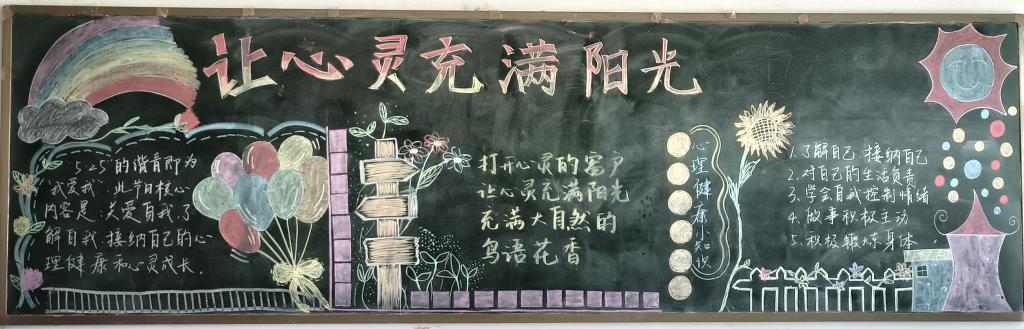 让心灵充满阳光
5.25"的谐音即为
"我爱我".此节日核心
内容是:关爱自我.了
解自我.接纳自己的心
理健康和心灵成长.
打开心灵的窗户
让心灵充满阳光
充满大自然的
鸟语花香
心理健康小知识
1.了解自己 接纳自己
2.对自己的生活负责
3.学会自我控制情绪
4.做事积极主动
5.积极锻炼身体